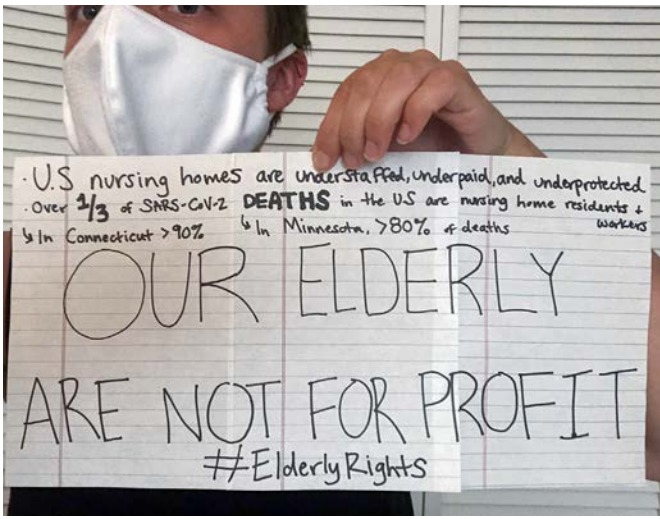 · U.S nursing homes are understaffed, underpaid, and underprotected
· Over 1/3 of SARS-CoV-2 DEATHS in the US are nursing home residents + workers
↳ In Connecticut >90% ↳ In Minnesota, >80% of deaths
OUR ELDERLY
ARE NOT FOR PROFIT
#ElderlyRights